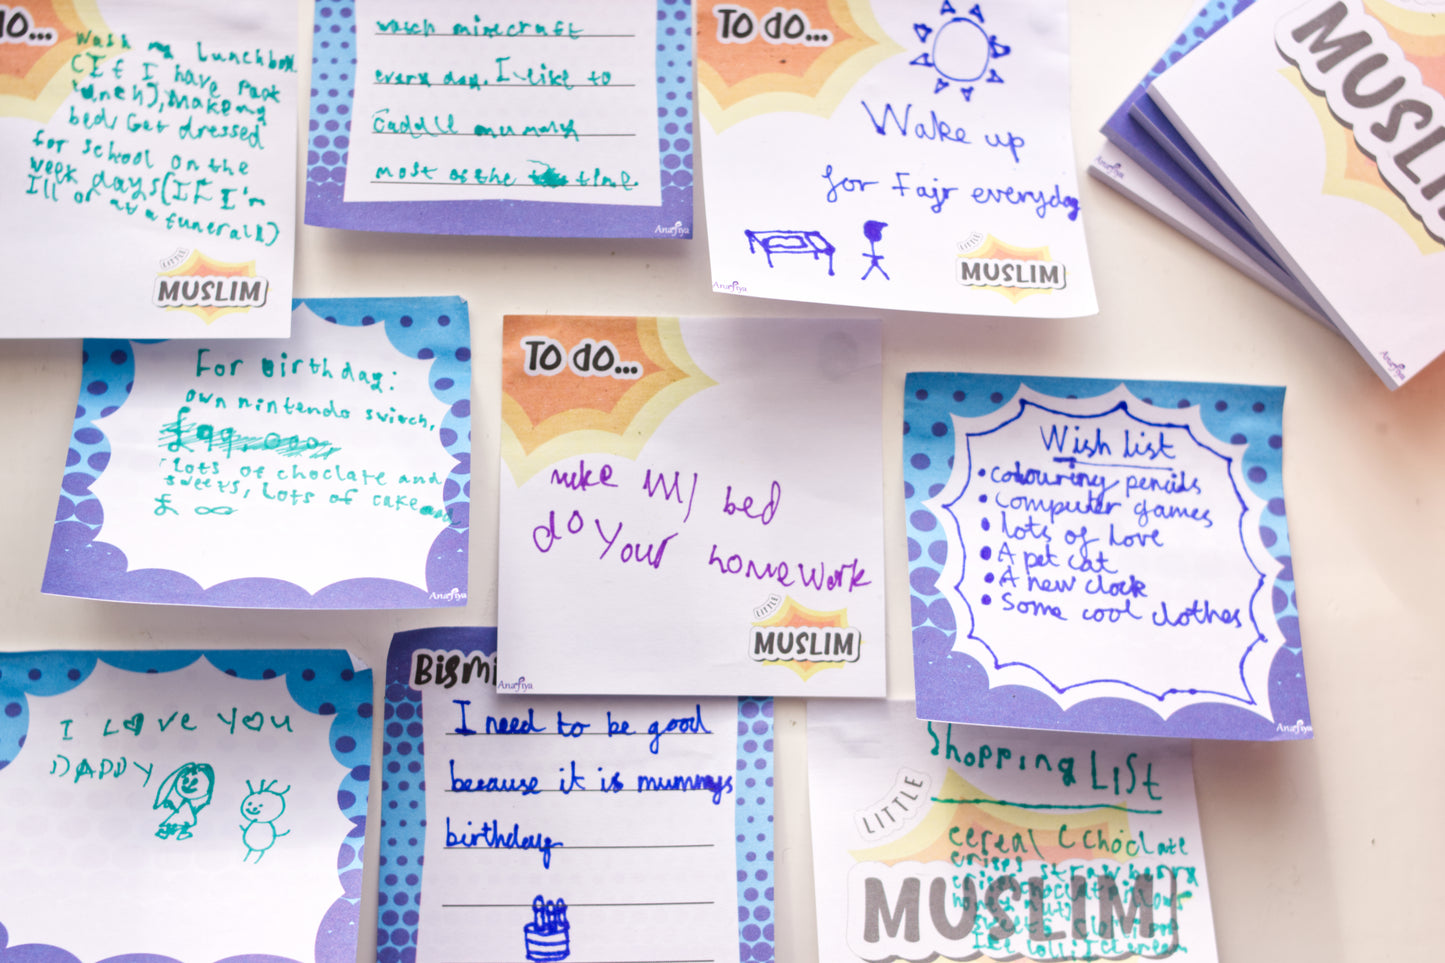 To do...
wash my lunchbox
(If I have Pack
lunch), Make my
bed, Get dressed
for school on the
week days (If I'm
Ill or at a funerall)
LITTLE
MUSLIM
watch minecraft
every day. I like to
most of the time.
Anafiya
To do...
Wake up
for Fajr everyday
Anafiya
LITTLE
MUSLIM
MUSLIM
Anafiya
Anafiya
For Birthday:
own nintendo switch,
lots of choclate and
sweets, lots of cake
£ ∞
Anafiya
To do...
make my bed
do your homework
LITTLE
MUSLIM
Anafiya
Wish list
• colouring pencils
• computer games
• lots of love
• A pet cat
• A new clock
• Some cool clothes
Anafiya
I LOVE YOU
DADDY
Bismi
I need to be good
because it is mummys
birthday
Shopping List
LITTLE
MUSLIM
cereal ( choclate
crisps strawberry
honey nut
sweets
Ice lolli Icecream